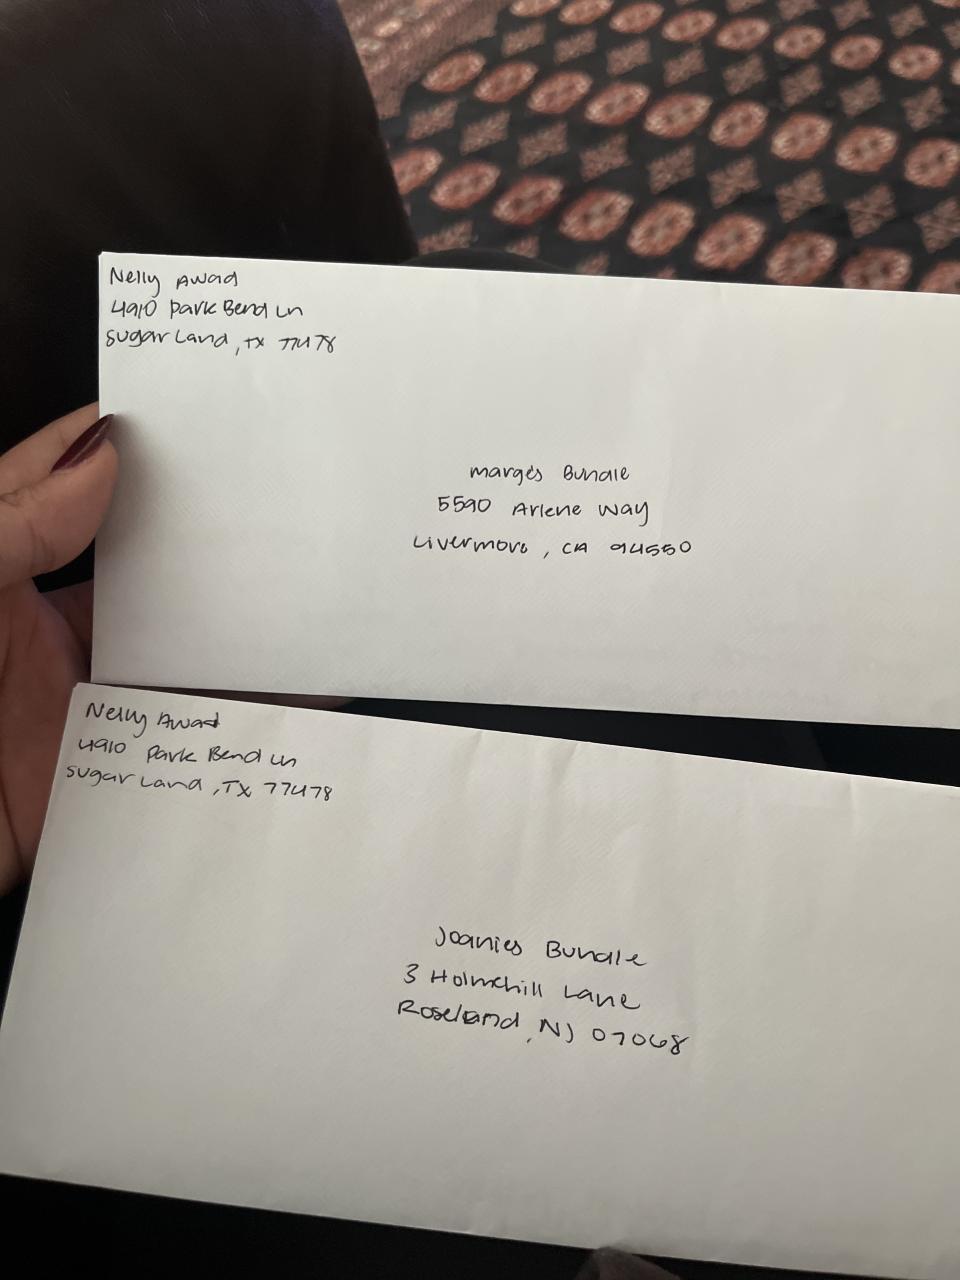 Nelly Awad
4910 Park Bend Ln
Sugar Land, TX 77478
Marge's Bundle
5590 Arlene Way
Livermore, CA 94550
Nelly Awad
4910 Park Bend Ln
Sugar Land, TX 77478
Joanies Bundle
3 Holmehill Lane
Roseland, NJ 07068